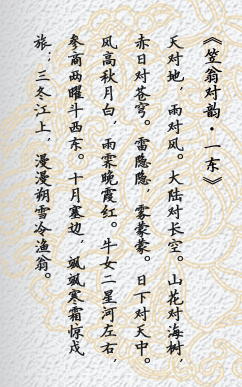 《笠翁对韵·一东》
天对地，雨对风。大陆对长空。山花对海树，
赤日对苍穹。雷隐隐，雾蒙蒙。日下对天中。
风高秋月白，雨霁晚霞红。牛女二星河左右，
参商两曜斗西东。十月塞边，飒飒寒霜惊戍
旅；三冬江上，漫漫朔雪冷渔翁。